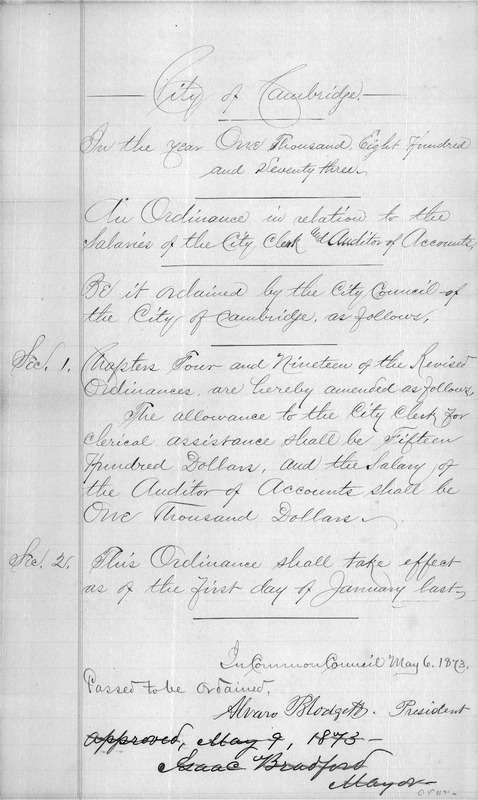 City of Cambridge.
In the year One Thousand Eight Hundred
and Seventy three.
An Ordinance in relation to the
Salaries of the City Clerk and Auditor of Accounts.
Be it ordained by the City Council of
the City of Cambridge, as follows,
Sec. 1. Chapters Four and Nineteen of the Revised
Ordinances, are hereby amended as follows,
The allowance to the City Clerk for
clerical assistance shall be Fifteen
Hundred Dollars, and the Salary of
the Auditor of Accounts shall be
One Thousand Dollars.
Sec. 2. This Ordinance shall take effect
as of the first day of January last.
In Common Council May 6. 1873.
Passed to be ordained.
Alvaro Blodgett. President
Approved, May 9, 1873
Isaac Bradford
Mayor